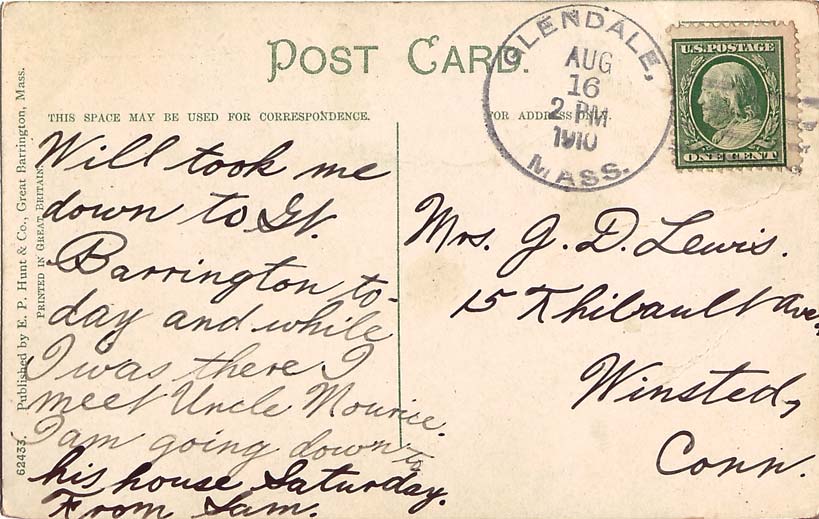 POST CARD.
THIS SPACE MAY BE USED FOR CORRESPONDENCE.
FOR ADDRESS ONLY.
GLENDALE,
AUG
16
2 PM
1910
MASS.
U.S. POSTAGE
ONE CENT
62433. Published by E. P. Hunt & Co., Great Barrington, Mass.
PRINTED IN GREAT BRITAIN
Will took me
down to Gt.
Barrington to-
day and while
I was there I
meet Uncle Mourice.
I am going down to
his house Saturday.
From Sam.
Mrs. J. D. Lewis.
15 Thibault Ave,
Winsted,
Conn.